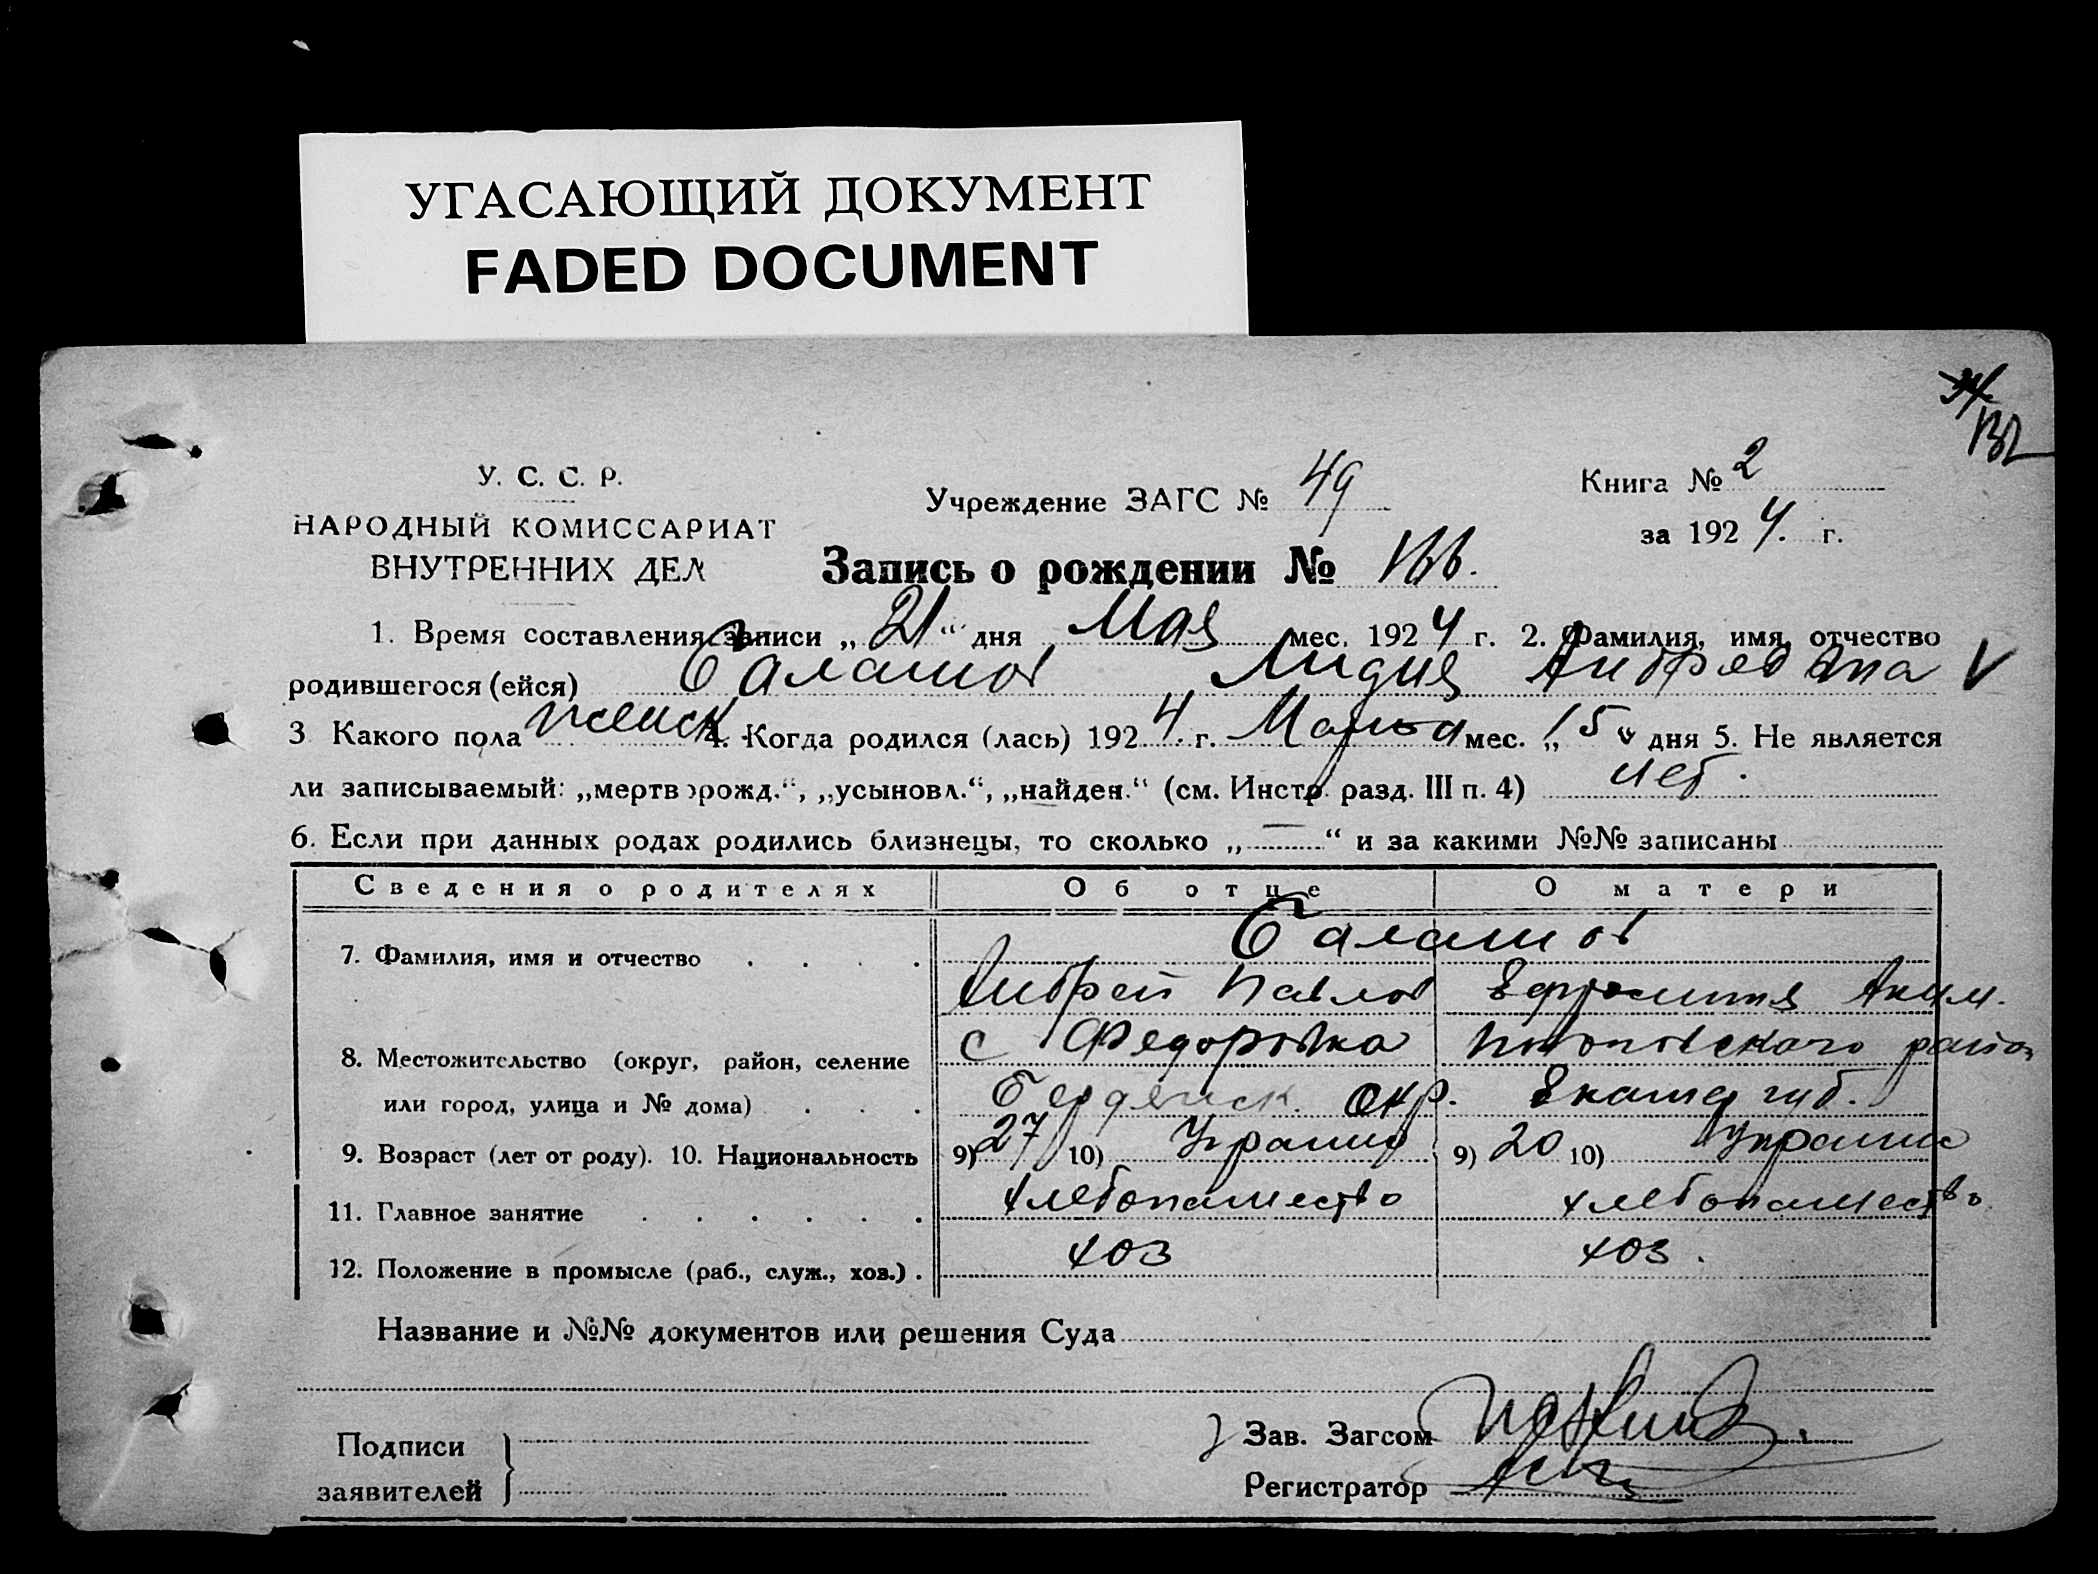 УГАСАЮЩИЙ ДОКУМЕНТ
FADED DOCUMENT
132
У. С. С. Р.
НАРОДНЫЙ КОМИССАРИАТ
ВНУТРЕННИХ ДЕЛ
Учреждение ЗАГС № 49
Книга № 2
за 1924. г.
Запись о рождении № 166.
1. Время составления записи „21“ дня Мая мес. 1924 г. 2. Фамилия, имя, отчество
родившегося (ейся) Балашов Лидия Андреевна V
3 Какого пола женск. 4. Когда родился (лась) 1924 г. Марта мес. „15“ дня 5. Не является
ли записываемый: „мертворожд.“, „усыновл.“, „найден.“ (см. Инстр. разд. III п. 4) нет.
6. Если при данных родах родились близнецы, то сколько „—“ и за какими №№ записаны
Сведения о родителях Об отце О матери
7. Фамилия, имя и отчество Балашов
Андрей Павлов Ефросиния Аким.
8. Местожительство (округ, район, селение с Федоровка района
или город, улица и № дома) Бердянск. окр. Екатер губ.
9. Возраст (лет от роду). 10. Национальность 9) 27 10) Украин 9) 20 10) Украин
11. Главное занятие хлебопашество хлебопашество
12. Положение в промысле (раб., служ., хоз.) хоз хоз.
Название и №№ документов или решения Суда
Подписи
заявителей
Зав. Загсом
Регистратор